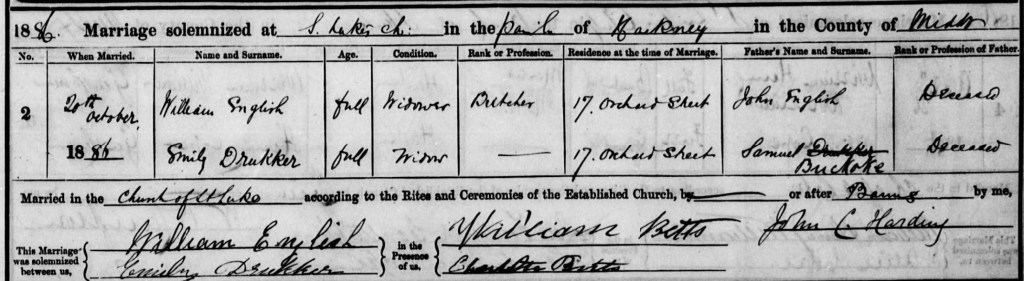 1886. Marriage solemnized at S. Lukes Ch: in the parish of Hackney in the County of Middx
No. When Married. Name and Surname. Age. Condition. Rank or Profession. Residence at the time of Marriage. Father's Name and Surname. Rank or Profession of Father.
2 20th October, William English full Widower Butcher 17. Orchard Street John English Deceased
1886 Emily Drukker full Widow — 17. Orchard Street Samuel Drukker Buckoke Deceased
Married in the Church of St Luke according to the Rites and Ceremonies of the Established Church, by — or after Banns by me,
This Marriage was solemnized between us, William English Emily Drukker in the Presence of us. William Betts Charlotte Betts John C. Harding